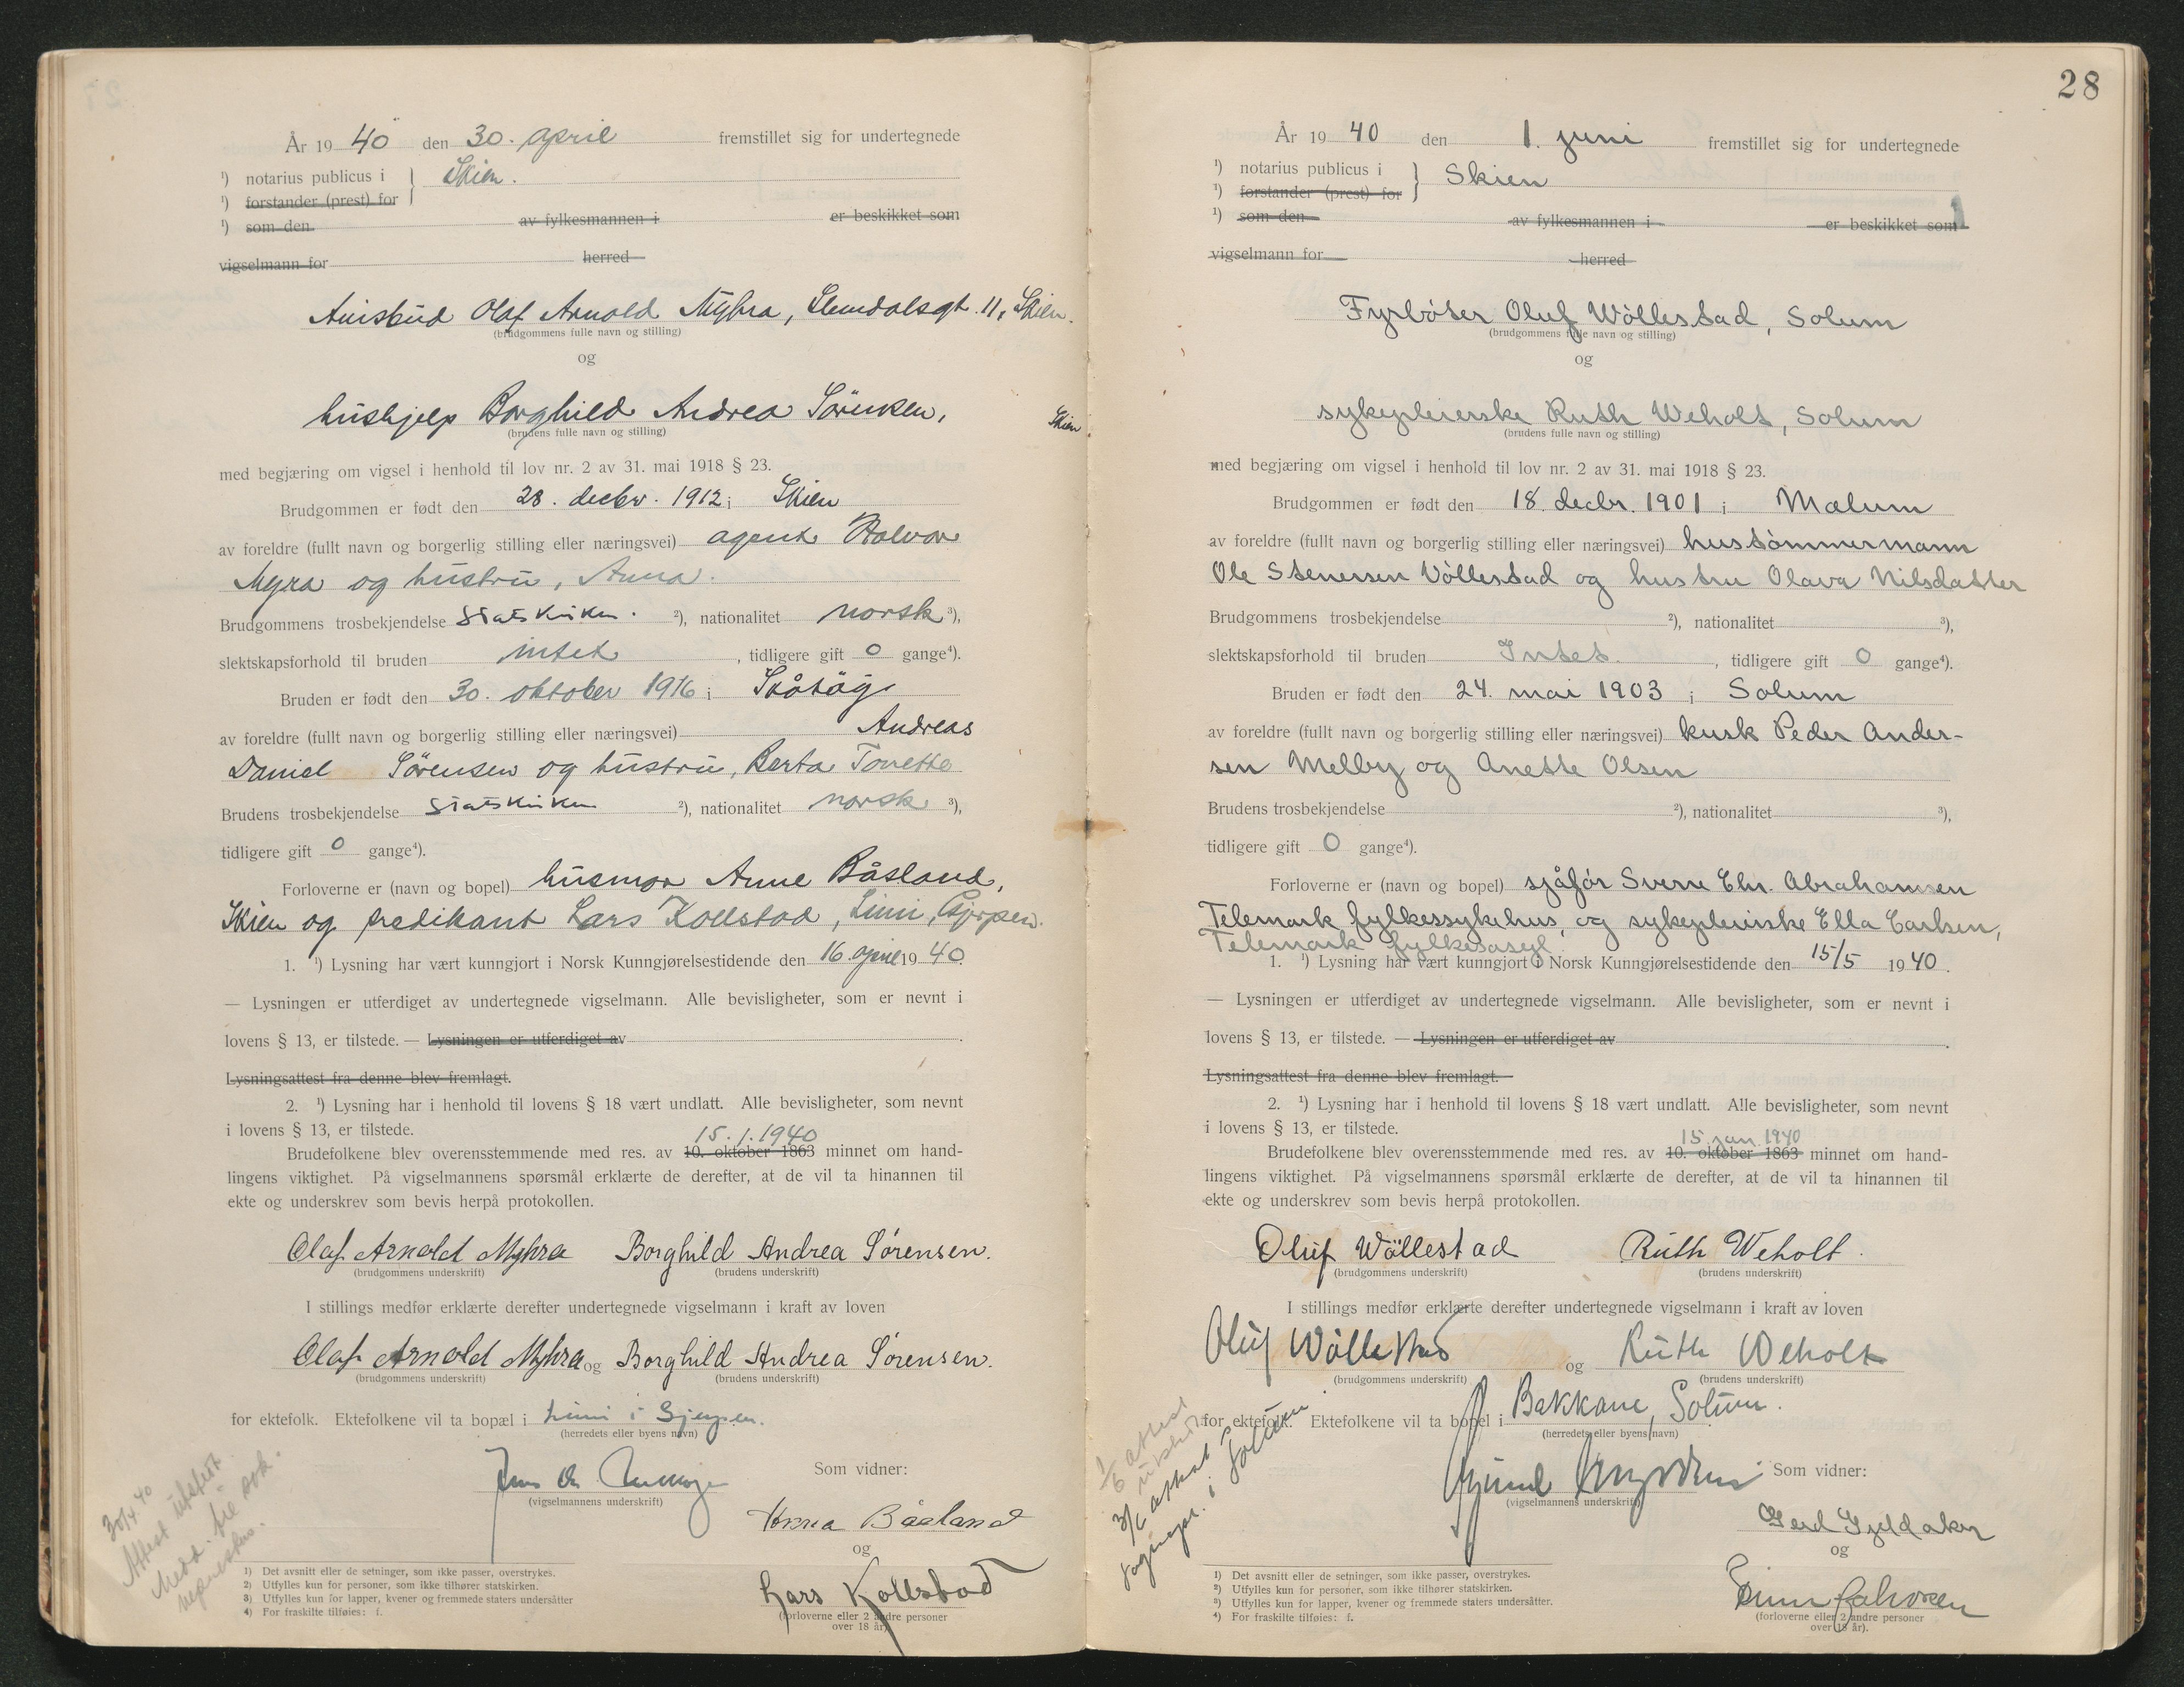 År 19 40 den 30. april fremstillet sig for undertegnede
¹) notarius publicus i } Skien.
¹) forstander (prest) for
¹) som den av fylkesmannen i er beskikket som
vigselmann for herred
Avisbud Olaf Arnold Myhra, Slemdalsgt. 11, Skien.
(brudgommens fulle navn og stilling)
og
hushjelp Borghild Andrea Sörensen, Skien
(brudens fulle navn og stilling)
med begjæring om vigsel i henhold til lov nr. 2 av 31. mai 1918 § 23.
Brudgommen er født den 28. decbr. 1912 i Skien
av foreldre (fullt navn og borgerlig stilling eller næringsvei) agent Halvor
Myra og hustru, Anna.
Brudgommens trosbekjendelse Statskirken. ²), nationalitet norsk ³),
slektskapsforhold til bruden intet, tidligere gift 0 gange⁴).
Bruden er født den 30. oktober 1916 i Skåtöy
av foreldre (fullt navn og borgerlig stilling eller næringsvei) Andreas
Daniel Sörensen og hustru, Berta Tonette
Brudens trosbekjendelse Statskirken ²), nationalitet norsk ³),
tidligere gift 0 gange⁴).
Forloverne er (navn og bopel) husmor Anne Båsland,
Skien og predikant Lars Kollstad, Limi, Gjerpen.
1. ¹) Lysning har vært kunngjort i Norsk Kunngjørelsestidende den 16. april 19 40.
— Lysningen er utferdiget av undertegnede vigselmann. Alle bevisligheter, som er nevnt i
lovens § 13, er tilstede. — Lysningen er utferdiget av .
Lysningsattest fra denne blev fremlagt.
2. ¹) Lysning har i henhold til lovens § 18 vært undlatt. Alle bevisligheter, som nevnt
i lovens § 13, er tilstede.
15.1.1940
Brudefolkene blev overensstemmende med res. av 10. oktober 1863 minnet om hand-
lingens viktighet. På vigselmannens spørsmål erklærte de derefter, at de vil ta hinannen til
ekte og underskrev som bevis herpå protokollen.
Olaf Arnold Myhra Borghild Andrea Sörensen.
(brudgommens underskrift) (brudens underskrift)
I stillings medfør erklærte derefter undertegnede vigselmann i kraft av loven
Olaf Arnold Myhra og Borghild Andrea Sörensen.
(brudgommens underskrift) (brudens underskrift)
for ektefolk. Ektefolkene vil ta bopæl i Limi i Gjerpen.
(herredets eller byens navn)
Som vidner:
(vigselmannens underskrift)
Anna Båsland
og
Lars Kollstad
(forloverne eller 2 andre personer
over 18 år).
30/4 40
Attest utstedt.
1) Det avsnitt eller de setninger, som ikke passer, overstrykes.
2) Utfylles kun for personer, som ikke tilhører statskirken.
3) Utfylles kun for lapper, kvener og fremmede staters undersåtter
4) For fraskilte tilføies: f.
28
År 19 40 den 1. juni fremstillet sig for undertegnede
¹) notarius publicus i } Skien
¹) forstander (prest) for
¹) som den av fylkesmannen i er beskikket som
vigselmann for herred
Fyrböter Oluf Wöllestad, Solum
(brudgommens fulle navn og stilling)
og
sykepleierske Ruth Weholt, Solum
(brudens fulle navn og stilling)
med begjæring om vigsel i henhold til lov nr. 2 av 31. mai 1918 § 23.
Brudgommen er født den 18. decbr. 1901 i Mælum
av foreldre (fullt navn og borgerlig stilling eller næringsvei) hustömmermann
Ole Stenersen Völlestad og hustru Olava Nilsdatter
Brudgommens trosbekjendelse ²), nationalitet ³),
slektskapsforhold til bruden Intet, tidligere gift 0 gange⁴).
Bruden er født den 24. mai 1903 i Solum
av foreldre (fullt navn og borgerlig stilling eller næringsvei) kusk Peder Ander-
sen Melby og Anette Olsen
Brudens trosbekjendelse ²), nationalitet ³),
tidligere gift 0 gange⁴).
Forloverne er (navn og bopel) sjåför Sverre Chr. Abrahamsen
Telemark fylkessykehus, og sykepleierske Ella Carlsen,
Telemark fylkesasyl
1. ¹) Lysning har vært kunngjort i Norsk Kunngjørelsestidende den 15/5 19 40.
— Lysningen er utferdiget av undertegnede vigselmann. Alle bevisligheter, som er nevnt i
lovens § 13, er tilstede. — Lysningen er utferdiget av .
Lysningsattest fra denne blev fremlagt.
2. ¹) Lysning har i henhold til lovens § 18 vært undlatt. Alle bevisligheter, som nevnt
i lovens § 13, er tilstede.
15 jan. 1940
Brudefolkene blev overensstemmende med res. av 10. oktober 1863 minnet om hand-
lingens viktighet. På vigselmannens spørsmål erklærte de derefter, at de vil ta hinannen til
ekte og underskrev som bevis herpå protokollen.
Oluf Wöllestad Ruth Weholt.
(brudgommens underskrift) (brudens underskrift)
I stillings medfør erklærte derefter undertegnede vigselmann i kraft av loven
Oluf Wöllestad og Ruth Weholt
(brudgommens underskrift) (brudens underskrift)
for ektefolk. Ektefolkene vil ta bopel i Bakkane, Solum.
(herredets eller byens navn)
Som vidner:
(vigselmannens underskrift)
og
(forloverne eller 2 andre personer
over 18 år).
1/6 attest
3/6 attest
i Solum
1) Det avsnitt eller de setninger, som ikke passer, overstrykes.
²) Utfylles kun for personer, som ikke tilhører statskirken.
³) Utfylles kun for lapper, kvener og fremmede staters undersåtter.
⁴) For fraskilte tilføies: f.